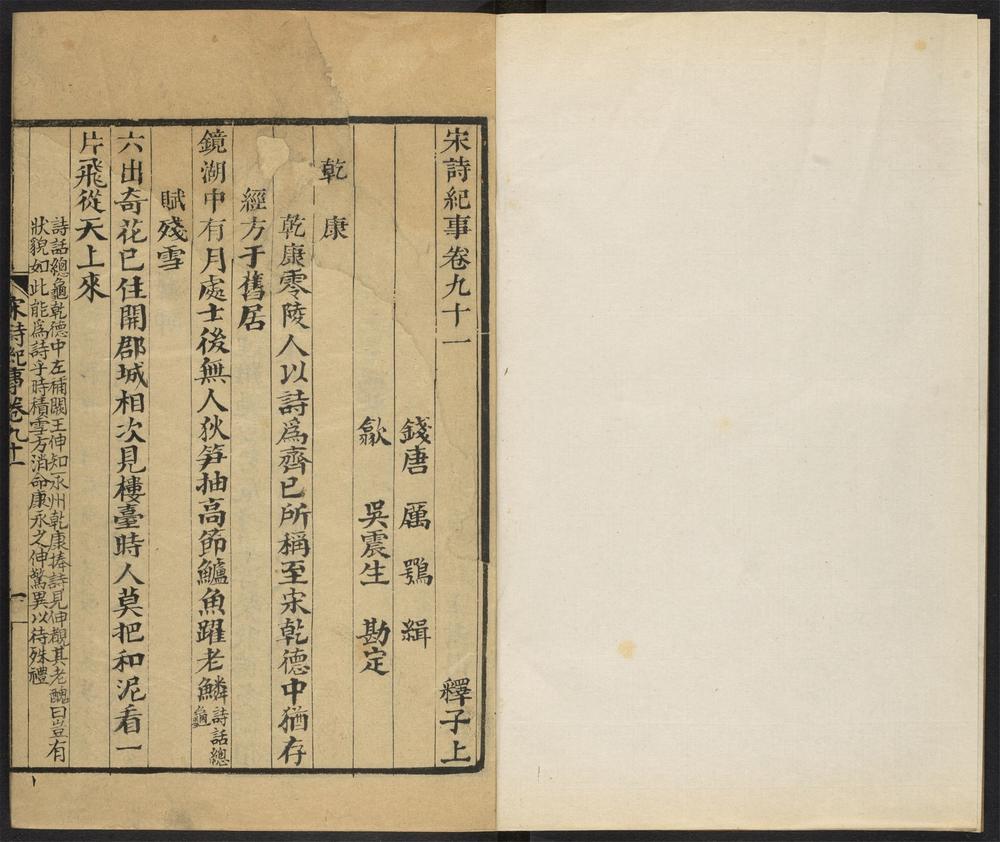 宋詩紀事卷九十一 釋子上
錢唐 厲鶚 緝
歙 吳震生 勘定
乾康
乾康零陵人以詩爲齊已所稱至宋乾德中猶存
經方干舊居
鏡湖中有月處士後無人荻笋抽高節鱸魚躍老鱗詩話總
龜
賦殘雪
六出奇花已住開郡城相次見樓臺時人莫把和泥看一
片飛從天上來
詩話總龜乾德中左補闕王伸知永州乾康捧詩見伸覩其老醜曰豈有
狀貌如此能爲詩乎時積雪方消命康永之伸驚異以待殊禮
宋詩紀事卷九十一
一